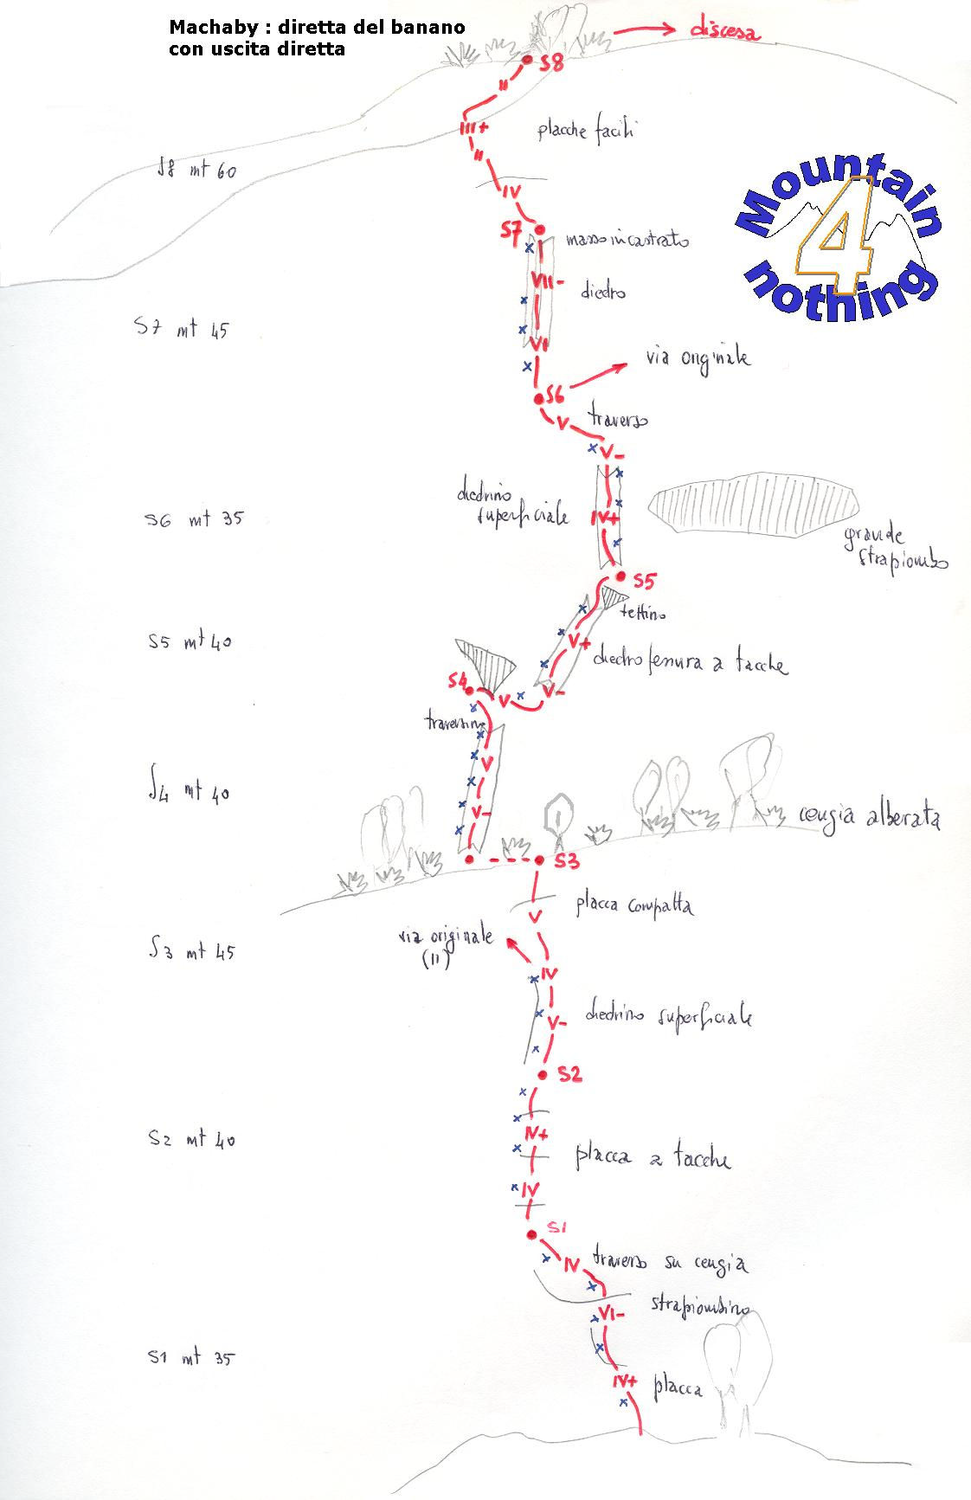 Machaby : diretta del banano
con uscita diretta
discesa
S8
II
III+
placche facili
II
S8 mt 60
IV
S7
masso incastrato
VII-
diedro
S7 mt 45
VI
via originale
S6
V
traverso
V-
diedrino
superficiale
IV+
S6 mt 35
grande
strapiombo
S5
tettino
S5 mt 40
V+
diedro fessura a tacche
S4
V
V-
traversino
V
S4 mt 40
V-
cengia alberata
S3
placca compatta
V
via originale
(II)
S3 mt 45
IV
diedrino superficiale
V-
S2
IV+
S2 mt 40
placca a tacche
IV
S1
IV
traverso su cengia
strapiombino
VI-
S1 mt 35
IV+
placca
Mountain
4
nothing